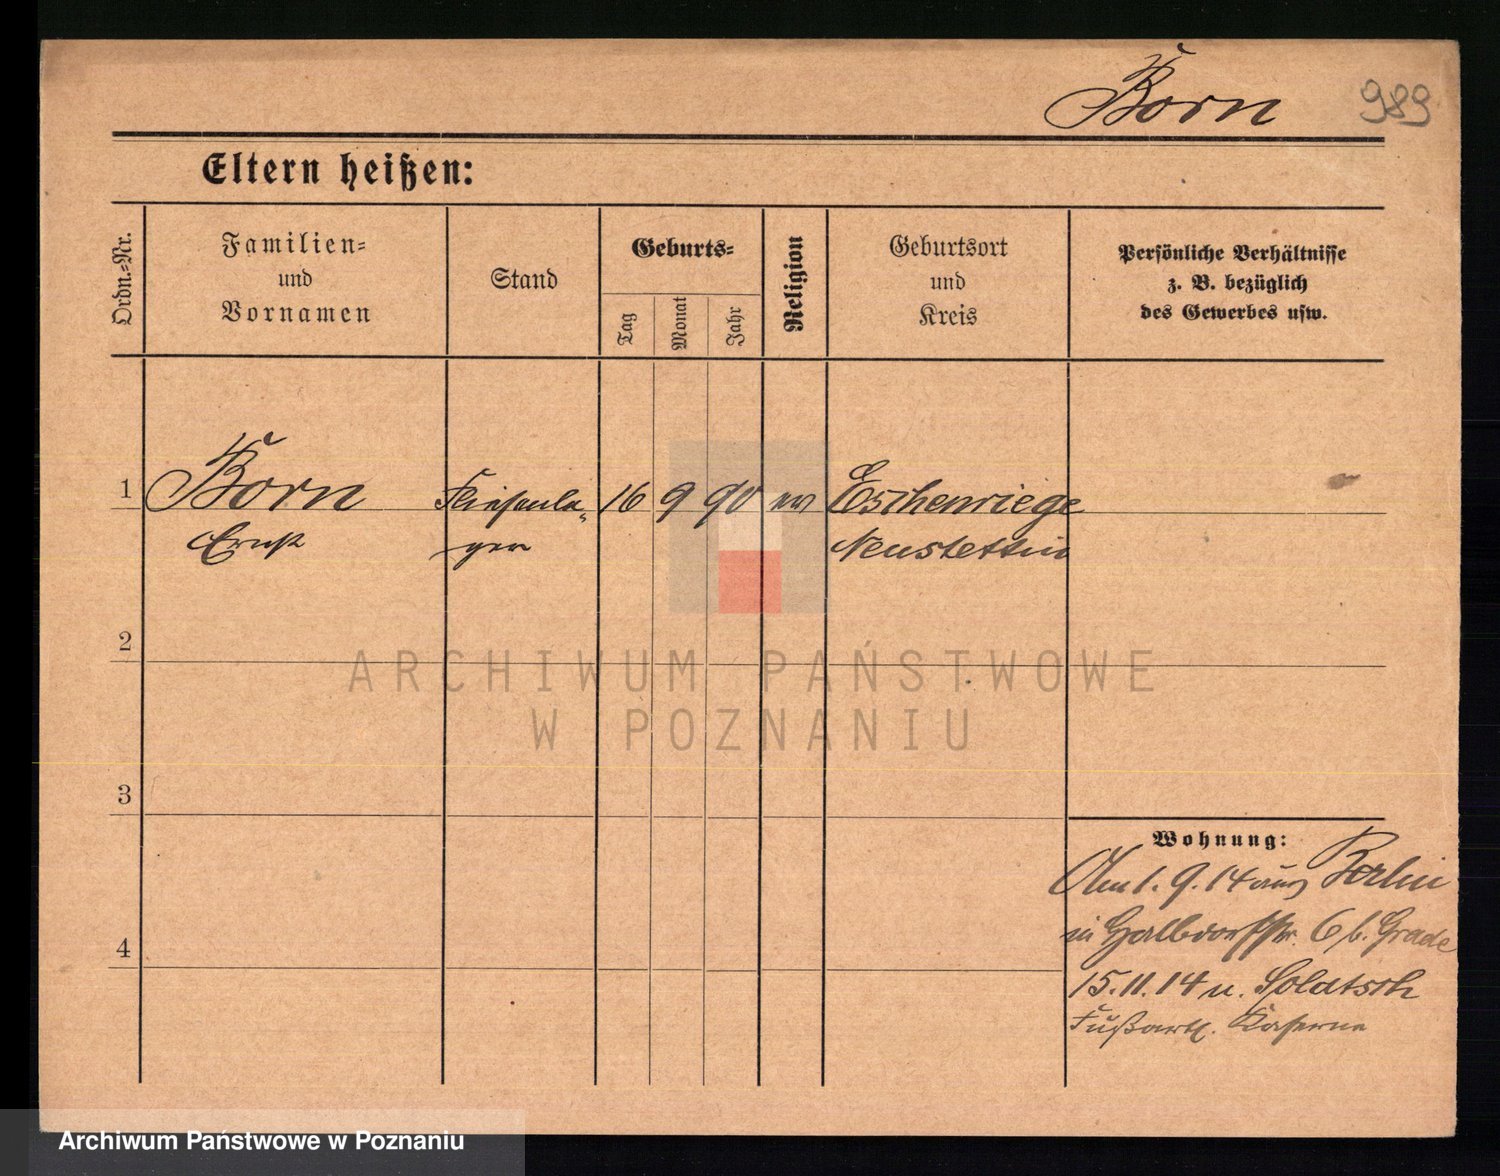 Born 989
Eltern heißen:
Ordn.-Nr.
Familien-
und
Vornamen
Stand
Geburts-
Tag
Monat
Jahr
Religion
Geburtsort
und
Kreis
Persönliche Verhältnisse
z. B. bezüglich
des Gewerbes usw.
1 Born Fliesenle- 16 9 90 ev Eschenriege
Ernst ger Neustettin
2
ARCHIWUM PAŃSTWOWE
W POZNANIU
3
Wohnung:
Am 1. 9. 14 aus Berlin
in Halbdorfstr. 6 b. Grade
15. 11. 14 n. Soldatsch
Fußartl. Kaserne
4
Archiwum Państwowe w Poznaniu